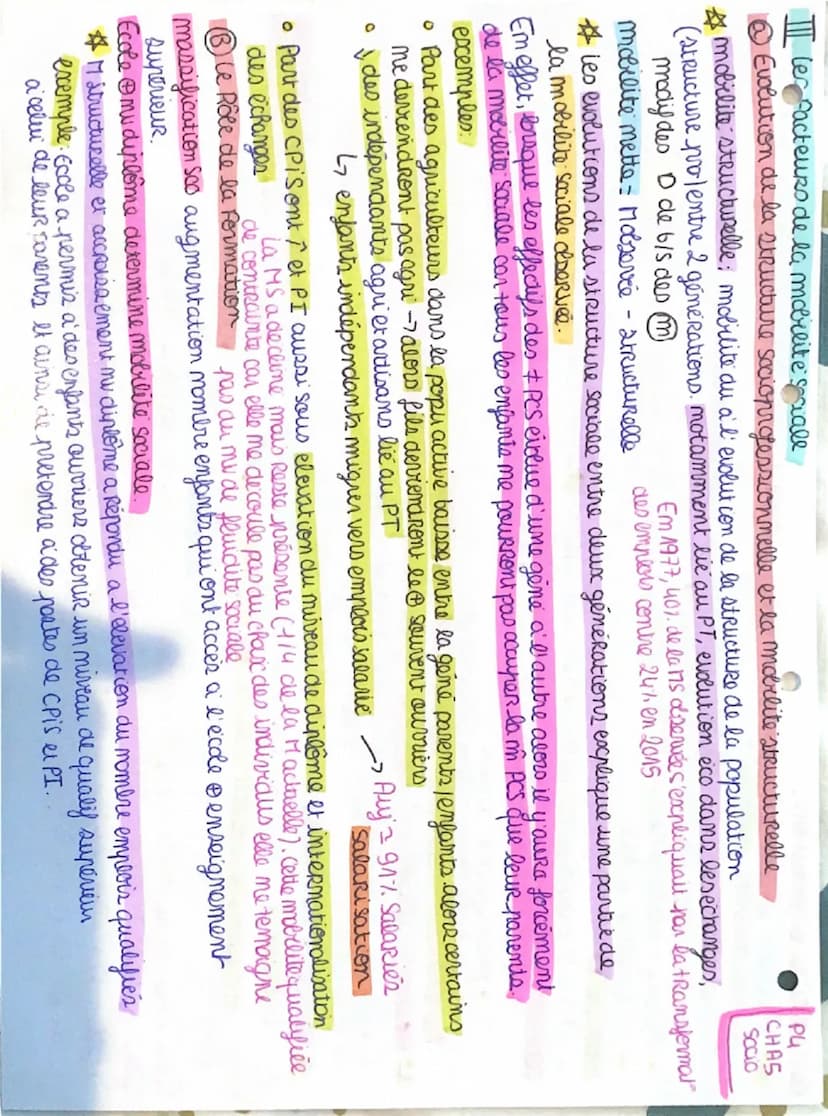 P4
CHAS
socio
III les facteurs de la mobilité sociale
a) Evolution de la structure socioprofessionnelle et la mobilité structurelle
☆ mobilité structurelle: mobilité du à l'évolution de la structure de la population
(structure pro) entre 2 générations. notamment lié au PT, evolution éco dans les échanges,
modif des D de b/s des (m)
En 1977, 40% de la MS observée s'expliquait par la transformat°
des emplois contre 24% en 2015
mobilité netta = M observée - structurelle
☆ les evolutions de la structure sociale entre deux générations explique une partie de
la mobilité sociale observé.
En effet, lorsque les effectifs des ≠ PCS évolue d'une géné à l'autre alors il y aura forcément
de la mobilité sociale car tous les enfants ne pourront pas occuper la m̂ PCS que leur parents.
exemples:
• Part des agriculteurs dans la popu active baisse entre la géné parents/enfants alors certains
ne deviendront pas agri → alors fils deviendront le ⊕ souvent ouvriers
• ↓ des indépendants agri et artisans lié au PT
↳ enfants indépendants migrer vers emplois salarié → Auj = 91% salariés
salarisation
• Part des CPIS ont ↑ et PI aussi sous elevation du niveau de diplôme et internationalisation
des échanges
La MS a décliné mais reste présente (~1/4 de la M actuelle). Cette mobilité qualifiée
de contrainte car elle ne découle pas du choix des individus elle ne temoigne
pas du nv de fluidité sociale
B) Le Rôle de la Formation
massification sco augmentation nombre enfants qui ont accès à l'école ⊕ enseignement
supérieur.
Ecole ⊕ nv diplôme determine mobilité sociale.
☆ M structurelle et accroissement nv diplôme a répondu a l'élévation du nombre emplois qualifiés
exemple: Ecole a permis à des enfants ouvriers obtenir un niveau de qualif supérieur
à celui de leur parents et ainsi de prétendre à des postes de CPIS et PI.